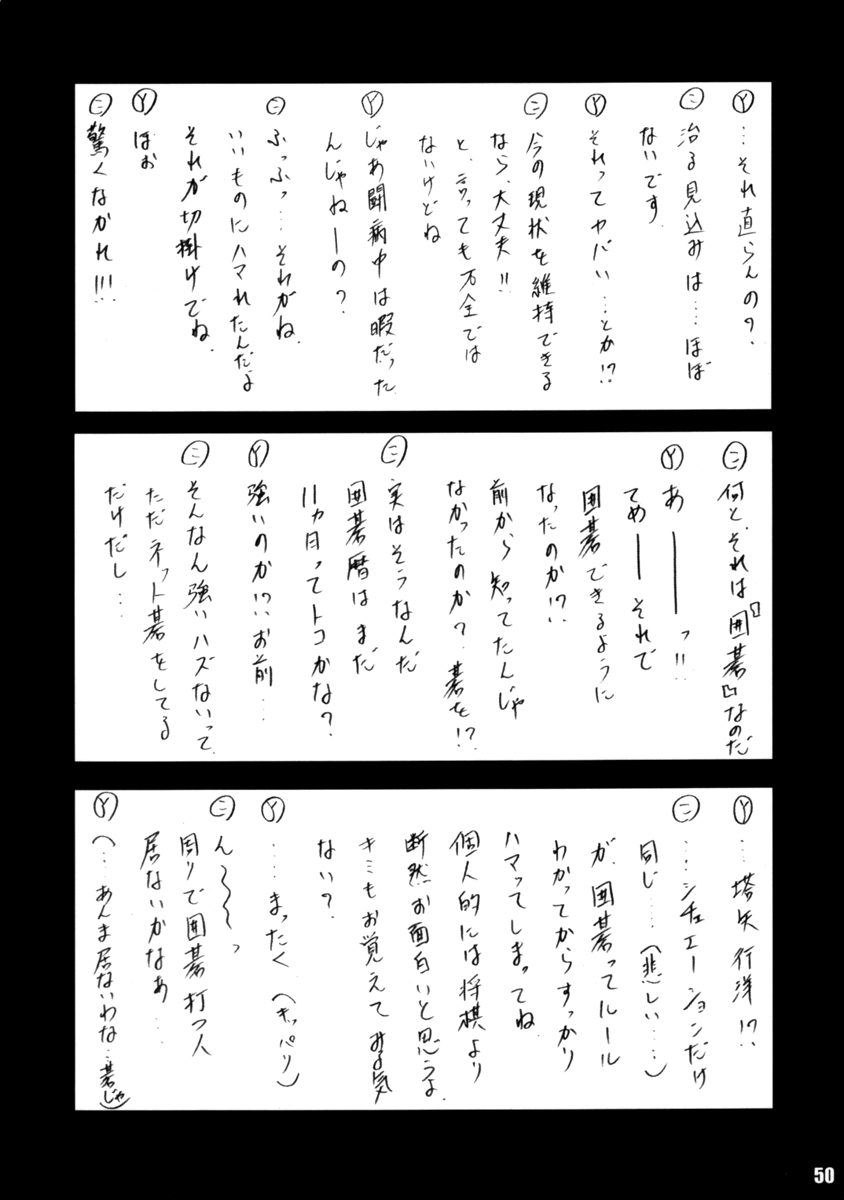 Ⓨ…それ直らんの?
㊁治る見込みは……ほぼ
ないです.
Ⓨそれってヤバい…とか!?
㊁今の現状を維持できる
なら、大丈夫!!
と、言っても万全では
ないけどね
Ⓨじゃあ闘病中は暇だった
んじゃねーの?
㊁ふっふっ…それがね.
いいものにハマれたんだよ
それが切掛けでね.
Ⓨほぉ
㊁驚くなかれ!!!
㊁何と、それは『囲碁』なのだ
Ⓨあ――――ッ!!
てめ――それで
囲碁できるように
なったのか!?
前から知ってたんじゃ
なかったのか?碁を!?
㊁実はそうなんだ
囲碁暦はまだ
11ヵ月ってトコかな?
Ⓨ強いのか!?お前…
㊁そんなん強いハズないって.
ただネット碁をしてる
だけだし…
Ⓨ…塔矢行洋!?
㊁……シチュエーションだけ
同じ……(悲しい……)
が、囲碁ってルール
わかってからすっかり
ハマってしまってね.
個人的には将棋より
断然お面白いと思うよ
キミもお覚えてみる気
ない?
Ⓨ……まったく(キッパリ)
㊁ん～～～っ
周りで囲碁打つ人
居ないかなぁ…
Ⓨ(…あんま居ないわな…碁じゃ)
50